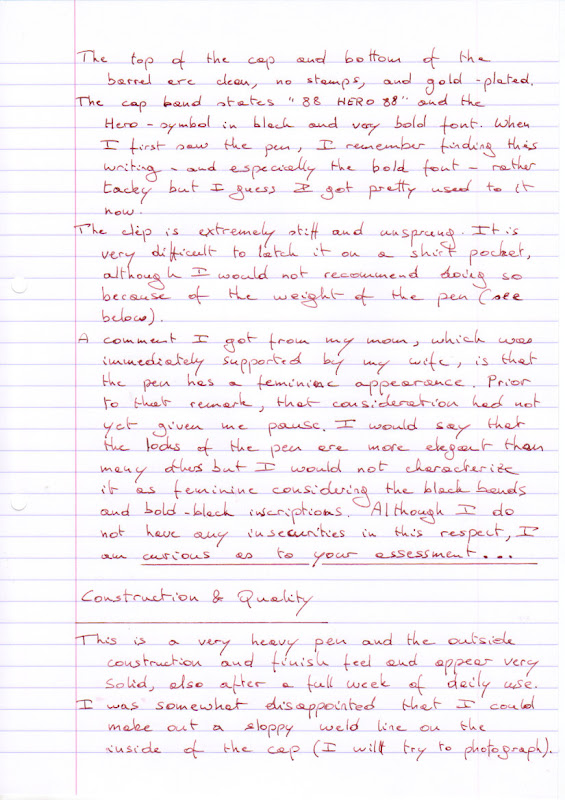 The top of the cap and bottom of the
barrel are clean, no stamps, and gold-plated.
The cap band states "88 HERO 88" and the
Hero-symbol in black and very bold font. When
I first saw the pen, I remember finding this
writing - and especially the bold font - rather
tacky but I guess I got pretty used to it
now.
The clip is extremely stiff and unsprung. It is
very difficult to latch it on a shirt pocket,
although I would not recommend doing so
because of the weight of the pen (see
below).
A comment I got from my mom, which was
immediately supported by my wife, is that
the pen has a feminine appearance. Prior
to that remark, that consideration had not
yet given me pause. I would say that
the looks of the pen are more elegant than
many others but I would not characterize
it as feminine considering the black bands
and bold-black inscriptions. Although I do
not have any insecurities in this respect, I
am curious as to your assessment...
Construction & Quality
This is a very heavy pen and the outside
construction and finish feel and appear very
solid, also after a full week of daily use.
I was somewhat disappointed that I could
make out a sloppy weld line on the
inside of the cap (I will try to photograph).